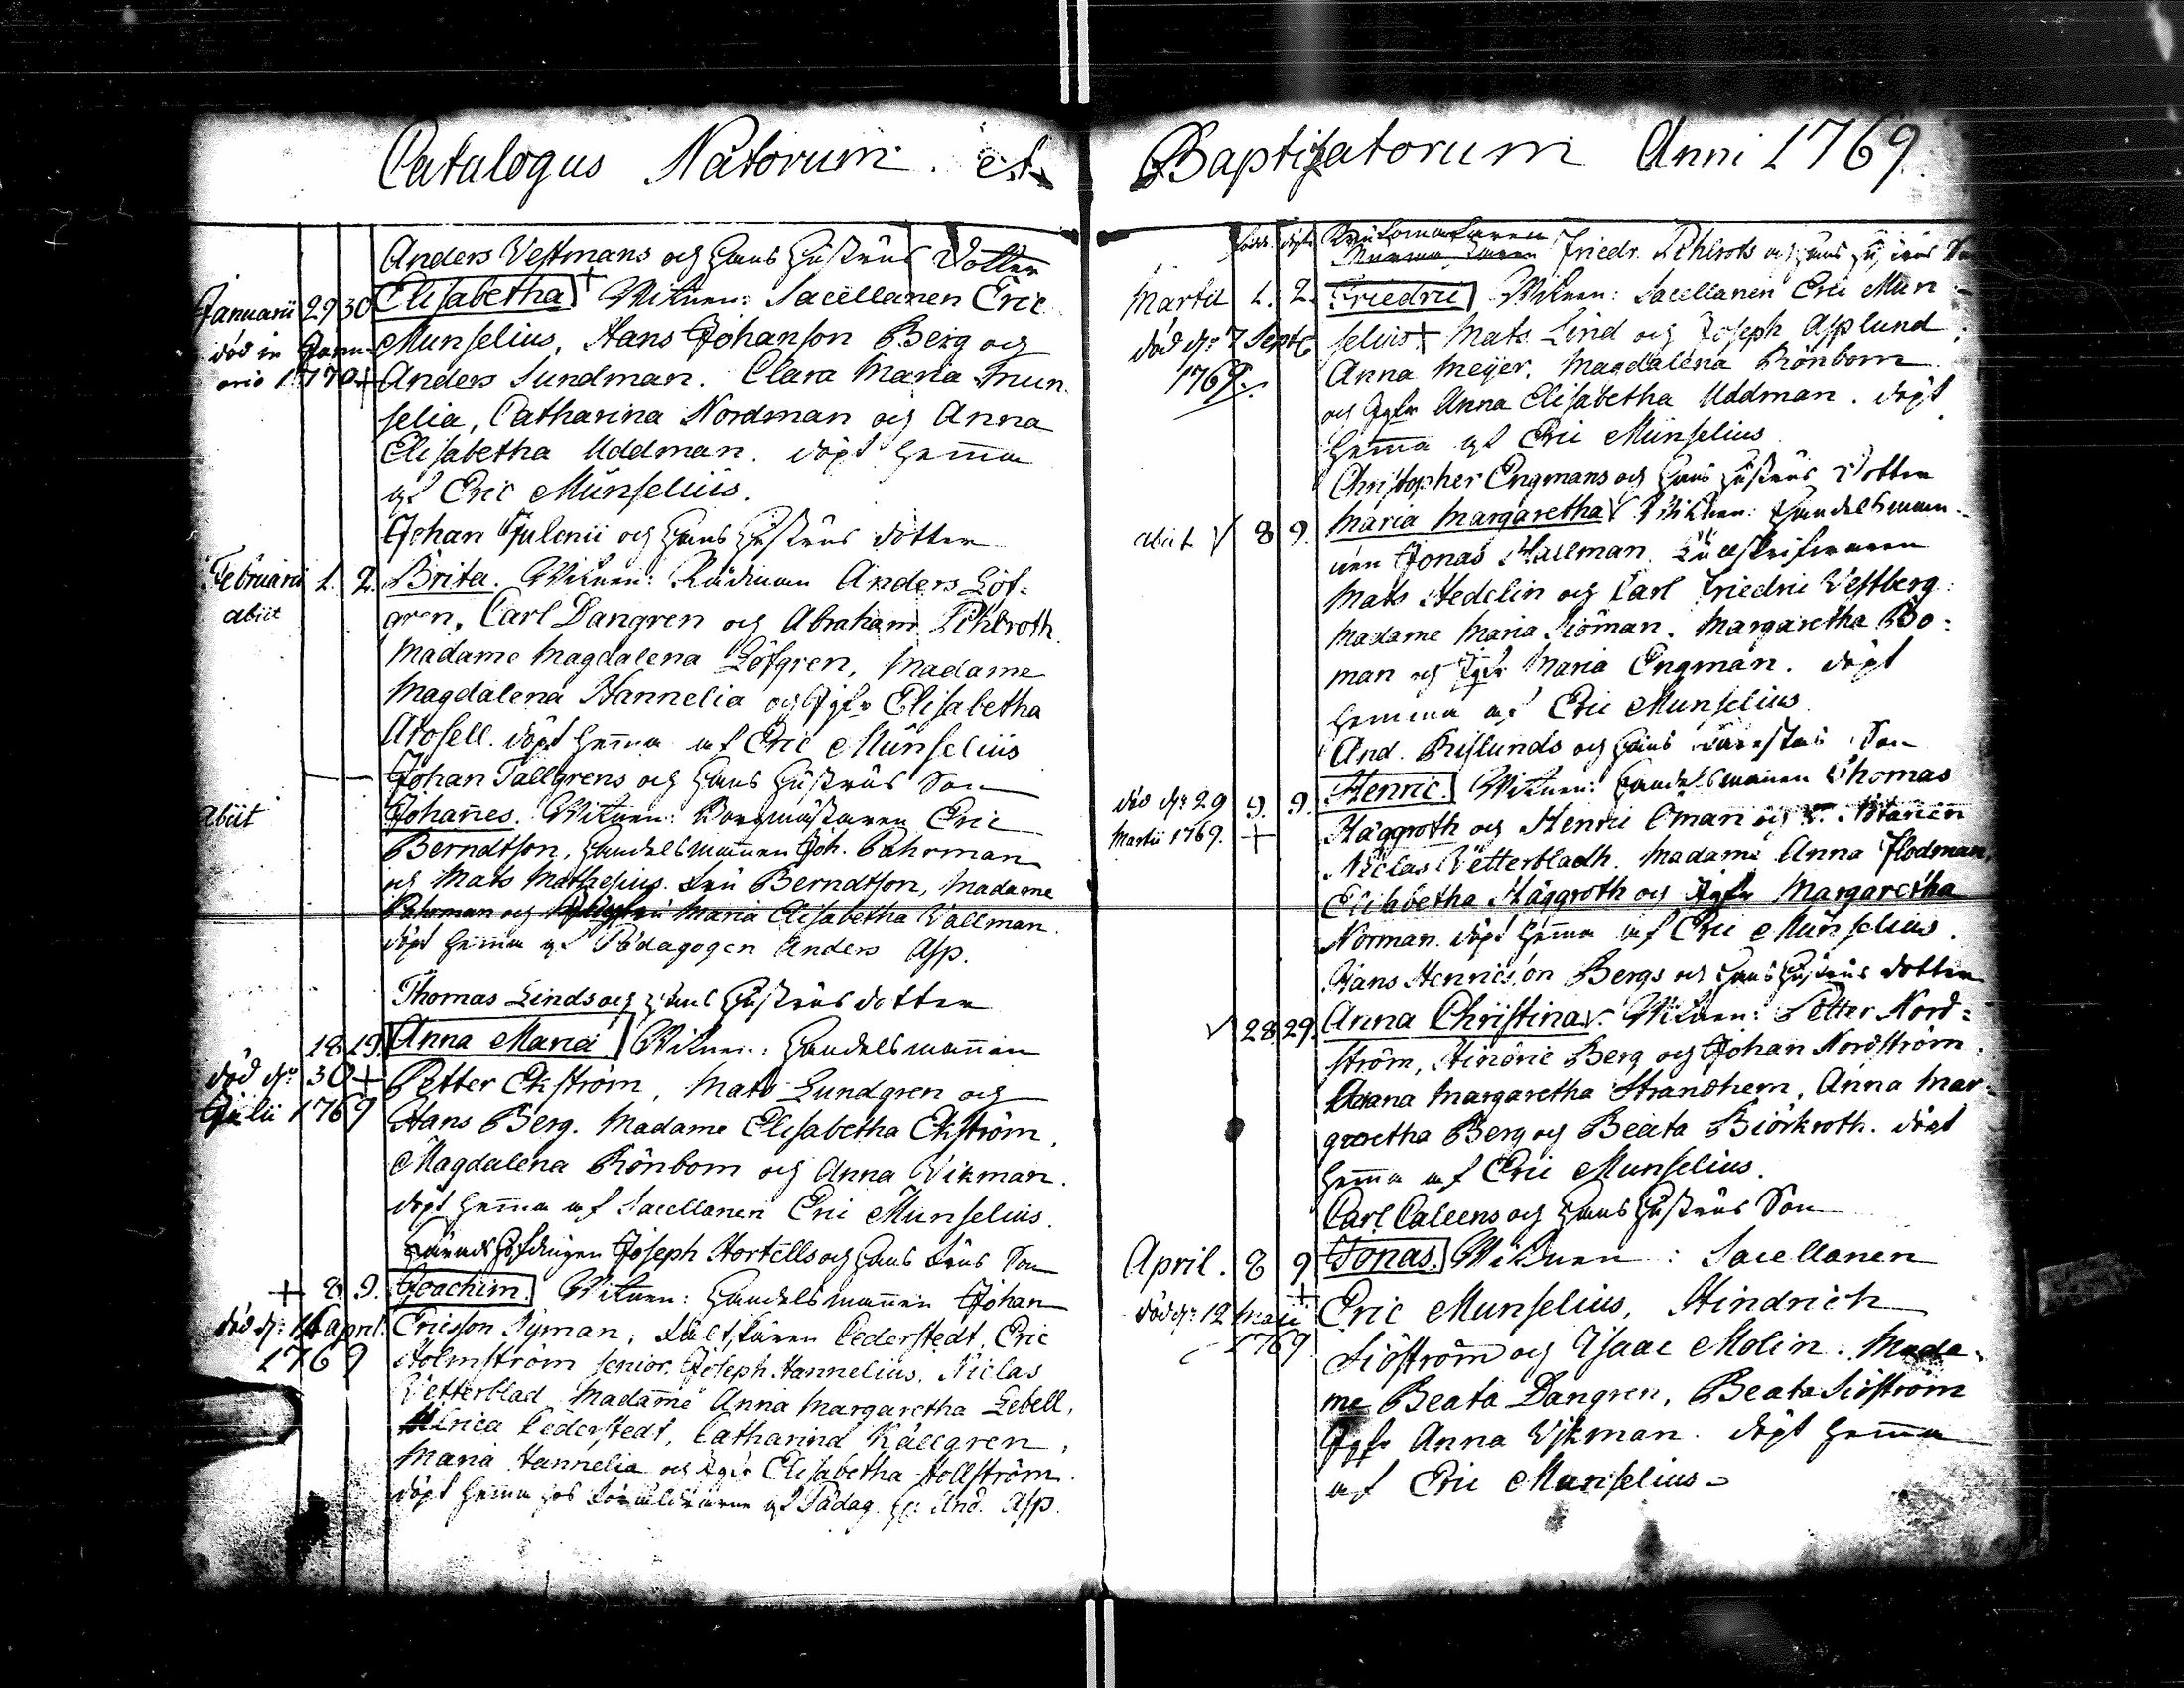 Catalogus Natorum. et
Anders Vestmans och hans hustrus Dotter
Januarii 29 30 Elisabetha + Witnen: Sacellanen Eric
död in Janu- Munselius, Hans Johanson Berg och
ario 1770 + Anders Sundman. Clara Maria Mun-
selia, Catharina Nordman och Anna
Elisabetha Uddman. döpt hema
af Eric Munselius.
Johan Julenii och hans hustrus dotter
Februarii 1. 2. Brita. Witnen: Rådman Anders Löf-
abiit gren, Carl Dangren och Abraham Pihlroth.
Madame Magdalena Löfgren, Madame
Magdalena Hannelia och Jgfr Elisabetha
Arosell. döpt hema af Eric Munselius
Johan Tallgrens och hans hustrus Son
abiit Johanes. Witnen: Borgmästaren Eric
Berndtson, handelsmannen Joh. Fahrman
och Mats Mathesius. fru Berndtson, Madame
Fahrman och Maria Elisabetha Vallman.
döpt hema af Pædagogen Anders Asp.
Thomas Linds och hans hustrus dotter
18 19. Anna Maria Witnen: handelsmannen
död d: 30 + Petter Ekström, Mats Lundgren och
Julii 1769 Hans Berg. Madame Elisabetha Ekström,
Magdalena Rönbom och Anna Vikman.
döpt hema af Sacellanen Eric Munselius.
häradshöfdingen Joseph Hortells och hans frus Son
+ 8. 9. Joachim. Witnen: handelsmannen Johan
död d: 16 april. Ericsson Nyman, Cederstedt, Eric
1769 Holmström senior, Joseph Hannelius, Niclas
Vetterblad Madame Anna Margaretha Lebell,
Ulrica Cederstedt, Catharina Källgren,
Maria Hannelia och Jgfr Elisabetha Hollström.
döpt hema hos föräldrarne af Pædag. h: And. Asp.
Baptizatorum Anni 1769.
född. döpt.
Friedr. Pihlrots och hans hustrus Son
Martii 1. 2. Friedric Witnen: Sacellanen Eric Mun-
död d: 7 Septb selius + Mats Lind och Joseph Asplund.
1769. Anna Meyer, Magdalena Rönbom
och Jgfr Anna Elisabetha Uddman. döpt
hema af Eric Munselius
Christopher Engmans och hans hustrus Dotter
abiit √ 8 9. Maria Margaretha Witnen: handelsman-
nen Jonas Hallman
Mats Hedelin och Carl Friedric Vestberg.
Madame Maria Siöman, Margaretha Bo-
man och Jgfr Maria Engman. döpt
hemma af Eric Munselius
And. och hans Son
död d: 29 9. 9. Henric. Witnen: handelsmannen Thomas
Martii 1769. + Häggroth och Henric Öman och Notarien
Niclas Vetterbladh. Madame Anna Flodman,
Elisabetha Häggroth och Jgfr Margaretha
Norman. döpt hema af Eric Munselius.
Hans Henricson Bergs och hans hustrus dotter
√ 28 29. Anna Christina √. Witnen: Petter Nord-
ström, Hindric Berg och Johan Nordström.
Anna Margaretha Strandhem, Anna Mar-
garetha Berg och Beata Biörkroth. döpt
hema af Eric Munselius.
Carl Caleens och hans hustrus Son
April. 8 9 Jonas. Witnen: Sacellanen
död d: 12 Maji + Eric Munselius, Hindrich
1769 Siöström och Isaac Molin. Mada-
me Beata Dangren, Beata Siöström
Jgfr Anna Vikman. döpt hema
af Eric Munselius